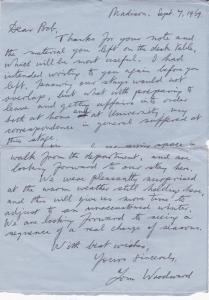 Madison. Sept. 7, 1969
Dear Bob,
Thanks for your note and
the material you left on the desk table,
which will be most useful. I had
intended writing to you again before you
left, knowing our stays would not
overlap, but what with preparing to
leave and getting affairs in order
both at home and at University, my
correspondence in general suffered at
this stage.
walk from the department, and are
looking forward to our stay here.
We were pleasantly surprised
at the warm weather still holding here,
and this will give us more time to
adjust to an unaccustomed winter.
We are looking forward to seeing a
of a real change of seasons.
With best wishes,
Yours sincerely,
Tom Woodward